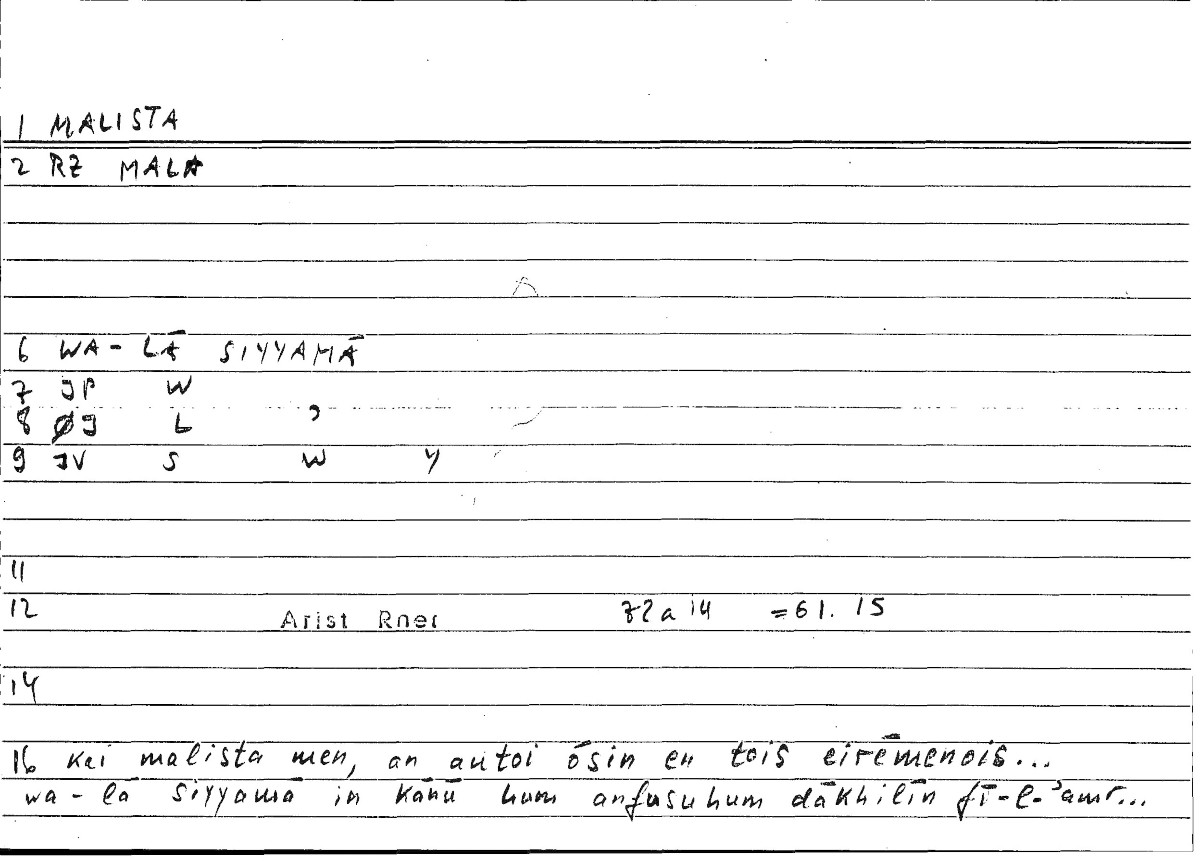 1 MALISTA
2 RZ MALA
6 WA - LĀ SIYYAMĀ
7 JP W
8 ØJ L ʾ
9 JV S W Y
11
12 Arist Rner 72a 14 = 61. 15
14
16 kai malista men, an autoi ōsin en tois eirēmenois...
wa - lā siyyamā in kānū hum anfusuhum dākhilīn fī-l-ʾamr...